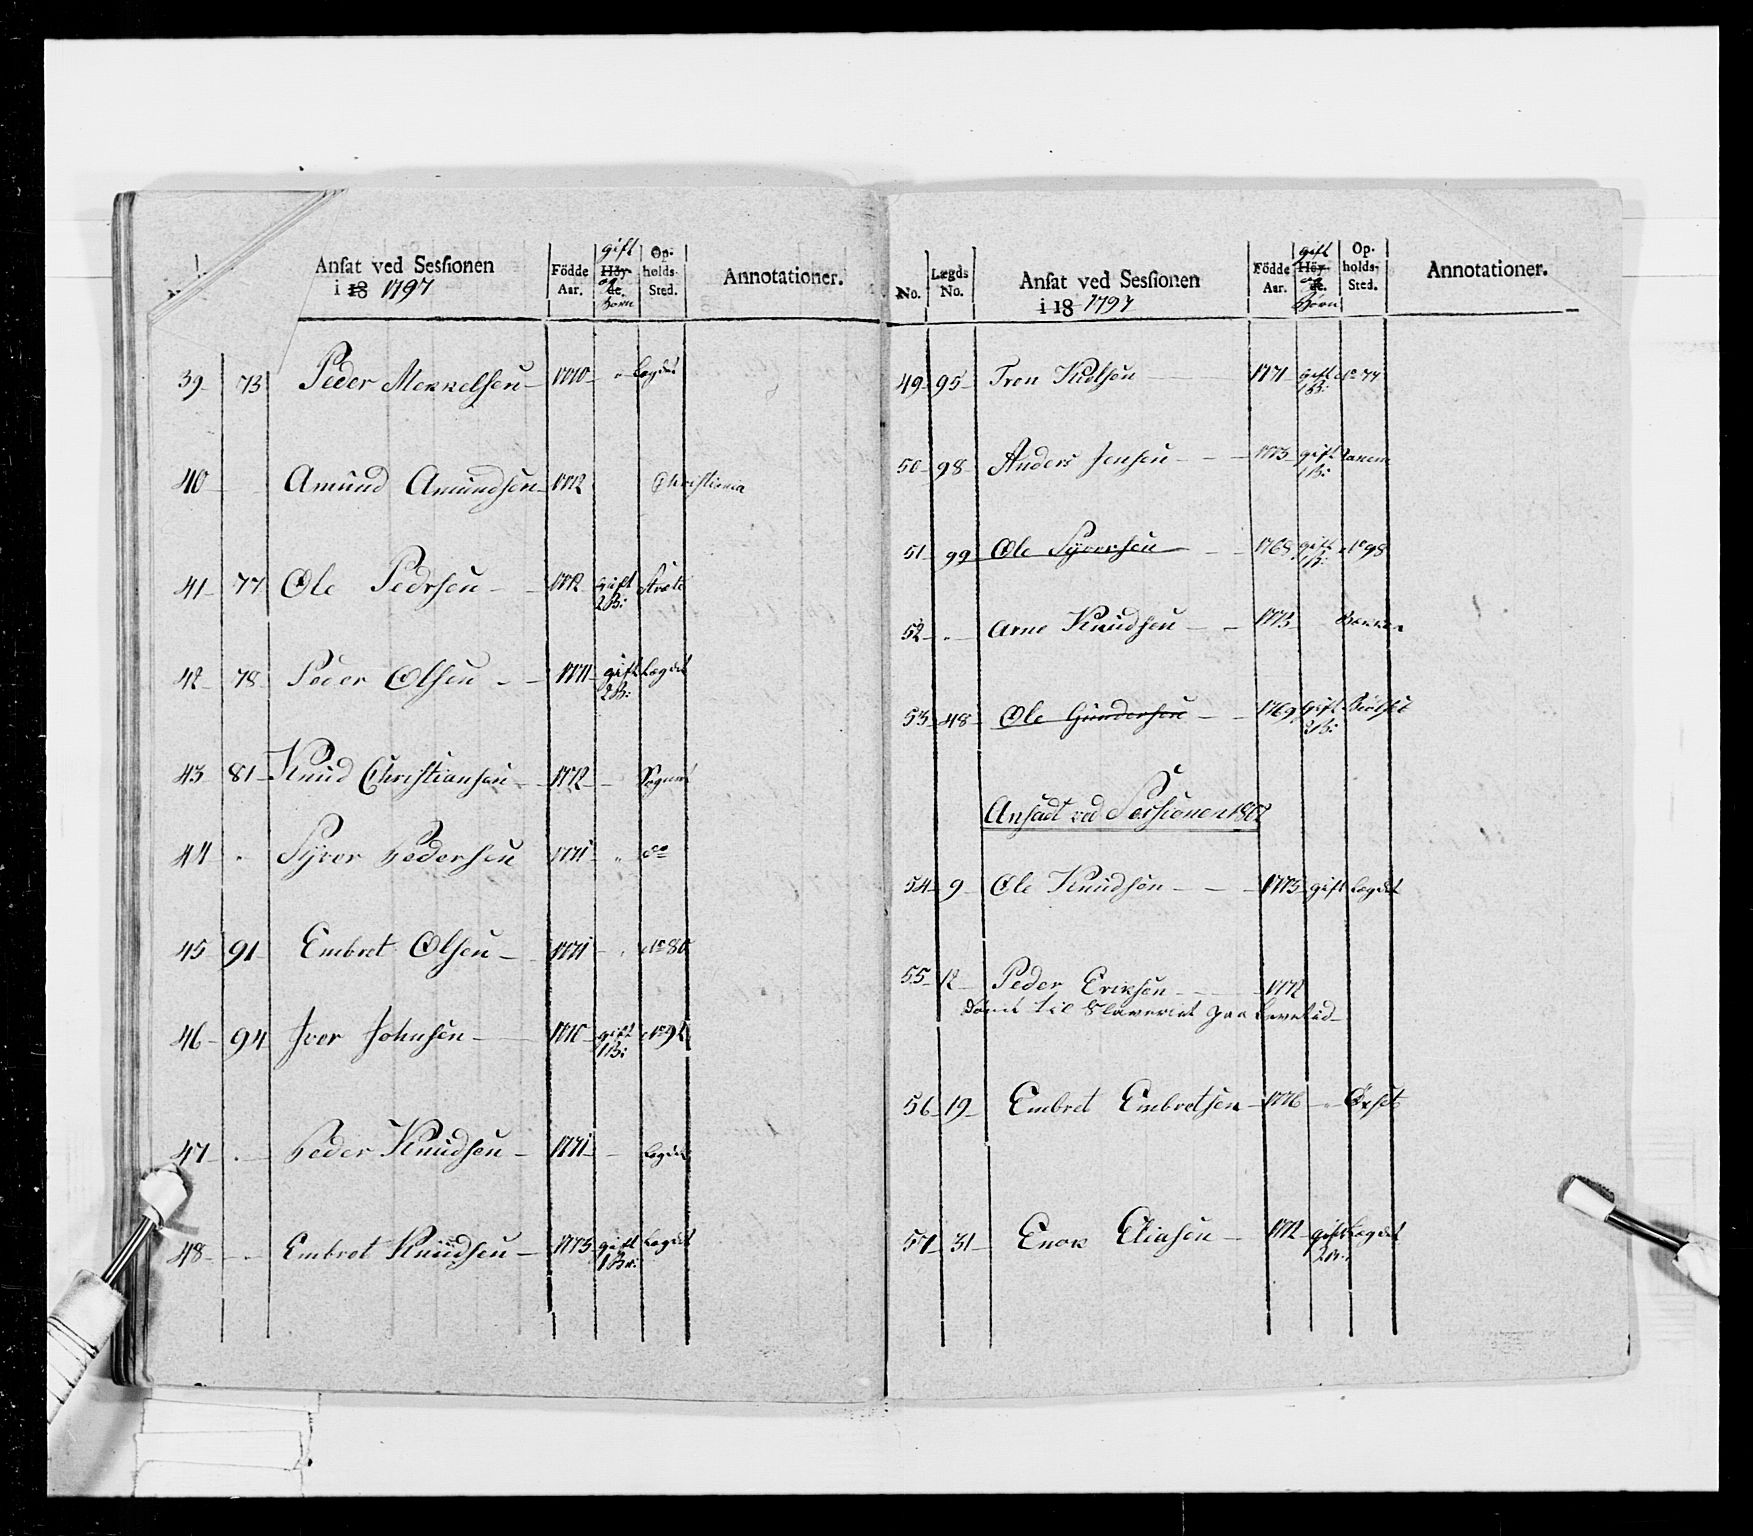 Ansat ved Sessionen
i 18 1797
Födde Aar.
gift Höyde. og Børn
Opholds-Sted.
Annotationer.
39 73 Peder Mekkelsen 1770 " Lægdet
40 Amund Amundsen 1772 Christiania
41 77 Ole Pedrsen 1772 gift 2 B:
42 78 Peder Olsen 1771 gift 2 B: Lægdet
43 81 Knud Christiansen 1772
44 " Syver Pedersen 1771 " do
45 91 Embret Olsen 1771 " No 80
46 94 Iver Johnsen 1770 gift 1 B: No 92
47 " Peder Knudsen 1771 Lægdet
48 " Embret Knudsen 1773 gift 1 Br: Lægdet
No.
Lægds No.
Ansat ved Sessionen
i 18 1797
Födde Aar.
gift Höyde. og Børn
Opholds-Sted.
Annotationer.
49 95 Tron 1771 gift 1 B: No 77
50 98 Anders Jensen 1773 gift 1 B:
51 99 Ole Syversen 1768 gift 1 B: No 98
52 " Arne Knudsen 1773
53 48 Ole Gundersen 1769 Gift 2 B:
Ansadt ved Sessionen 1802
54 9 Ole Knudsen 1775 gift Lægdet
55 12 Peder Eriksen 1772
Dømt til Slaveriet paa Levetid
56 19 Embret Embretsen 1776 "
57 31 Enok Eliasen 1772 gift 2 B: Lægdet